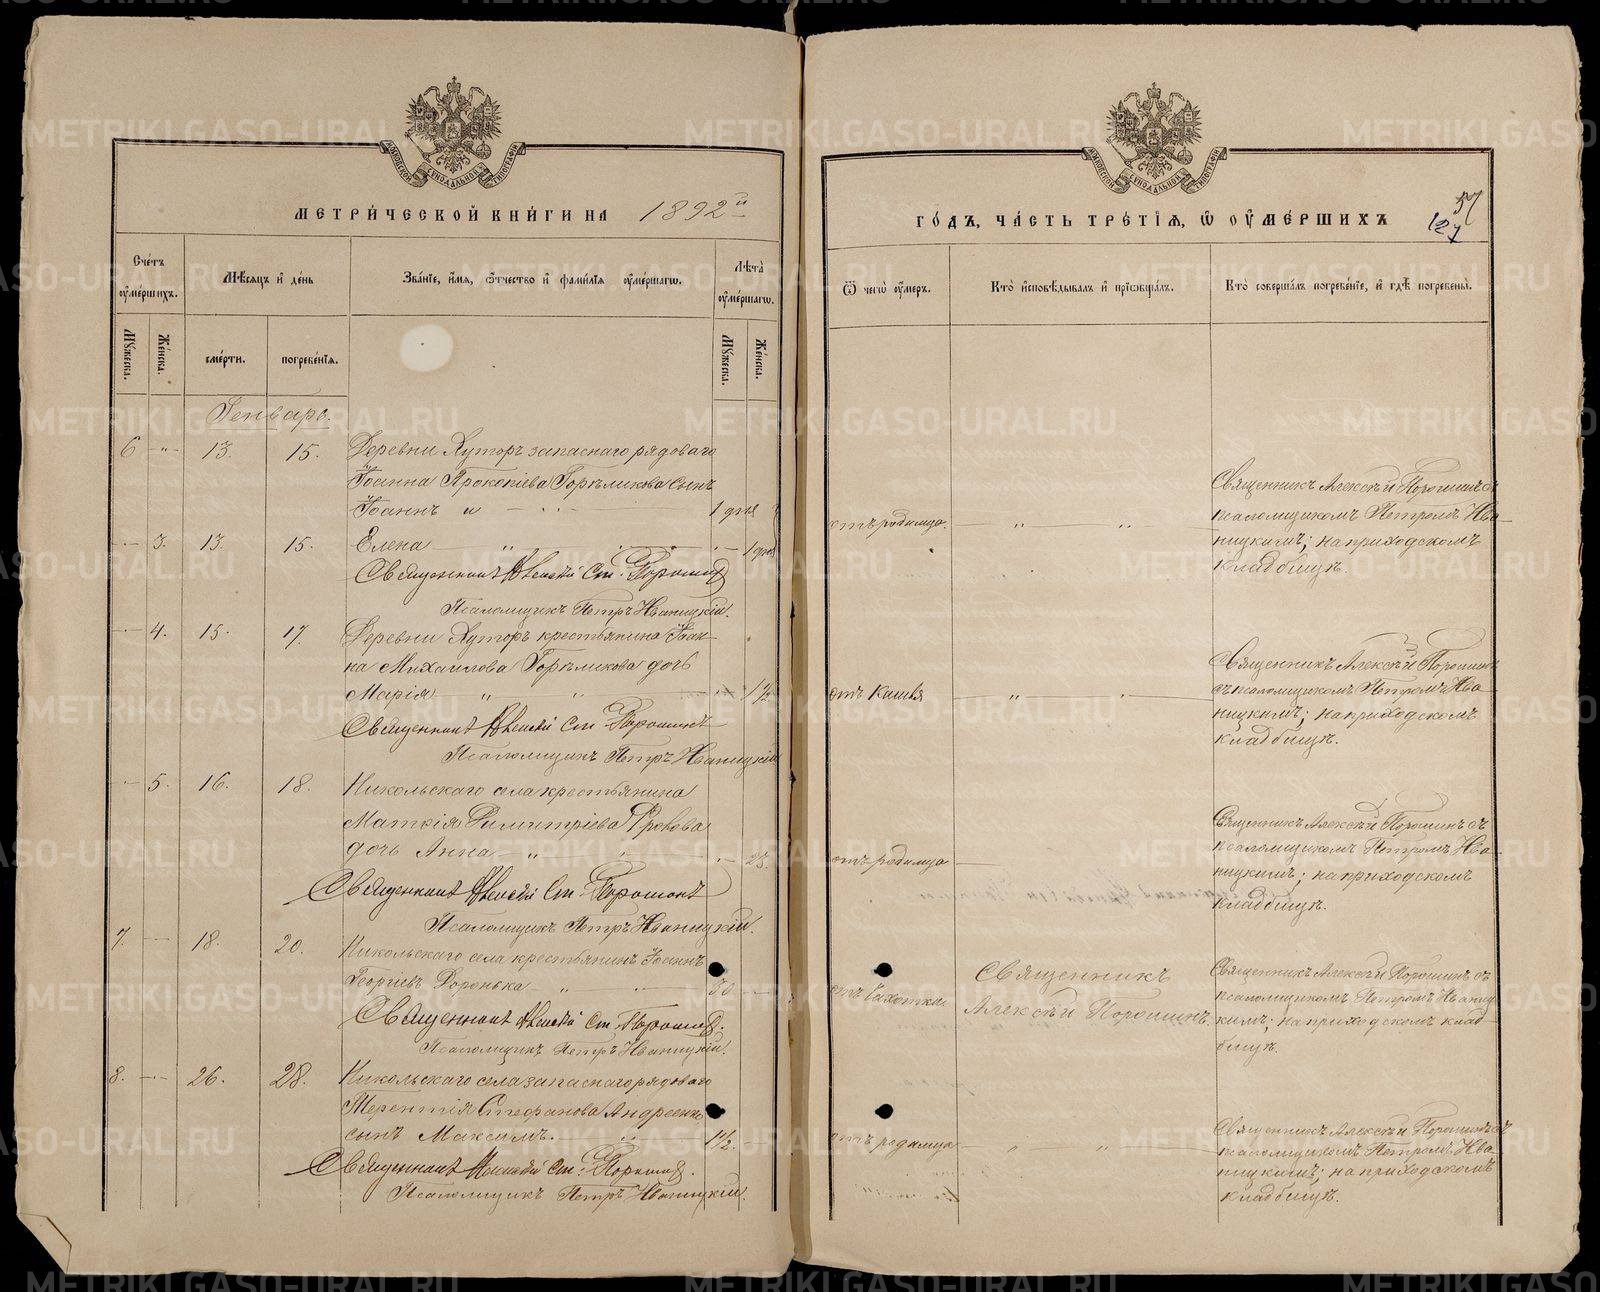 МЕТРИ́ЧЕСКОЙ КНИ́ГИ НА 1892й
Сче́тъ оумершихъ.
Мѣсяцъ и день
Зва́нїе, и́мя, ѻтчество и фами́лїя оуме́ршагѡ.
Лѣта оуме́ршагѡ.
Мужеска.
Же́нска.
сме́рти.
погребе́нїя.
Мужеска.
Же́нска.
Генварь.
6 " 13. 15. Деревни Хуторъ запаснаго рядоваго
Іоанна Прокопіева Горѣликова сынъ
Іоаннъ и 1 дня
3. 13. 15. Елена " 1 дня
Священникъ Алексѣй Ст. Порошинъ
Псаломщикъ Петръ Иваницкій.
4. 15. 17. Деревни Хуторъ крестьянина Іоан-
на Михаилова Горѣликова дочь
Марія " " 1½
Священникъ Алексѣй Ст. Порошинъ
Псаломщикъ Петръ Иваницкій
5. 16. 18. Никольскаго села крестьянина
Матѳія Димитріева
дочь Анна "
Священникъ Алексѣй Ст. Порошинъ
Псаломщикъ Петръ Иваницкій.
7. 18. 20. Никольскаго села крестьянинъ Іоаннъ
Георгіевъ Доронька "
Священникъ Алексѣй Ст. Порошинъ.
Псаломщикъ Петръ Иваницкій.
8. 26. 28. Никольскаго села запаснаго рядоваго
Терентія Стефанова Андреенко
сынъ Максимъ. " 1½.
Священникъ Алексѣй Ст. Порошинъ.
Псаломщикъ Петръ Иваницкій.
ГО́ДЪ, ЧА́СТЬ ТРЕ́ТЇЯ, Ѡ ОУМЕ́РШИХЪ
57
127
Ѿ чегѡ оумеръ.
Кто̀ исповѣдывалъ и прїобща́лъ.
Кто̀ соверша́лъ погребе́нїе, и гдѣ̀ погребены̀.
отъ родимца. " "
Священникъ Алексѣй Порошинъ съ
псаломщикомъ Петромъ Ива-
ницкимъ; на приходскомъ
кладбищѣ.
отъ кашля " "
Священникъ Алексѣй Порошинъ
съ псаломщикомъ Петромъ Ива-
ницкимъ; на приходскомъ
кладбищѣ.
отъ родимца
Священникъ Алексѣй Порошинъ съ
псаломщикомъ Петромъ Ива-
ницкимъ; на приходскомъ
кладбищѣ.
отъ чахотки
Священникъ
Алексѣй Порошинъ.
Священникъ Алексѣй Порошинъ съ
псаломщикомъ Петромъ Иваниц-
кимъ; на приходскомъ клад-
бищѣ.
отъ родимца " "
Священникъ Алексѣй Порошинъ съ
псаломщикомъ Петромъ Ива-
ницкимъ; на приходскомъ
кладбищѣ.
METRIKI.GASO-URAL.RU